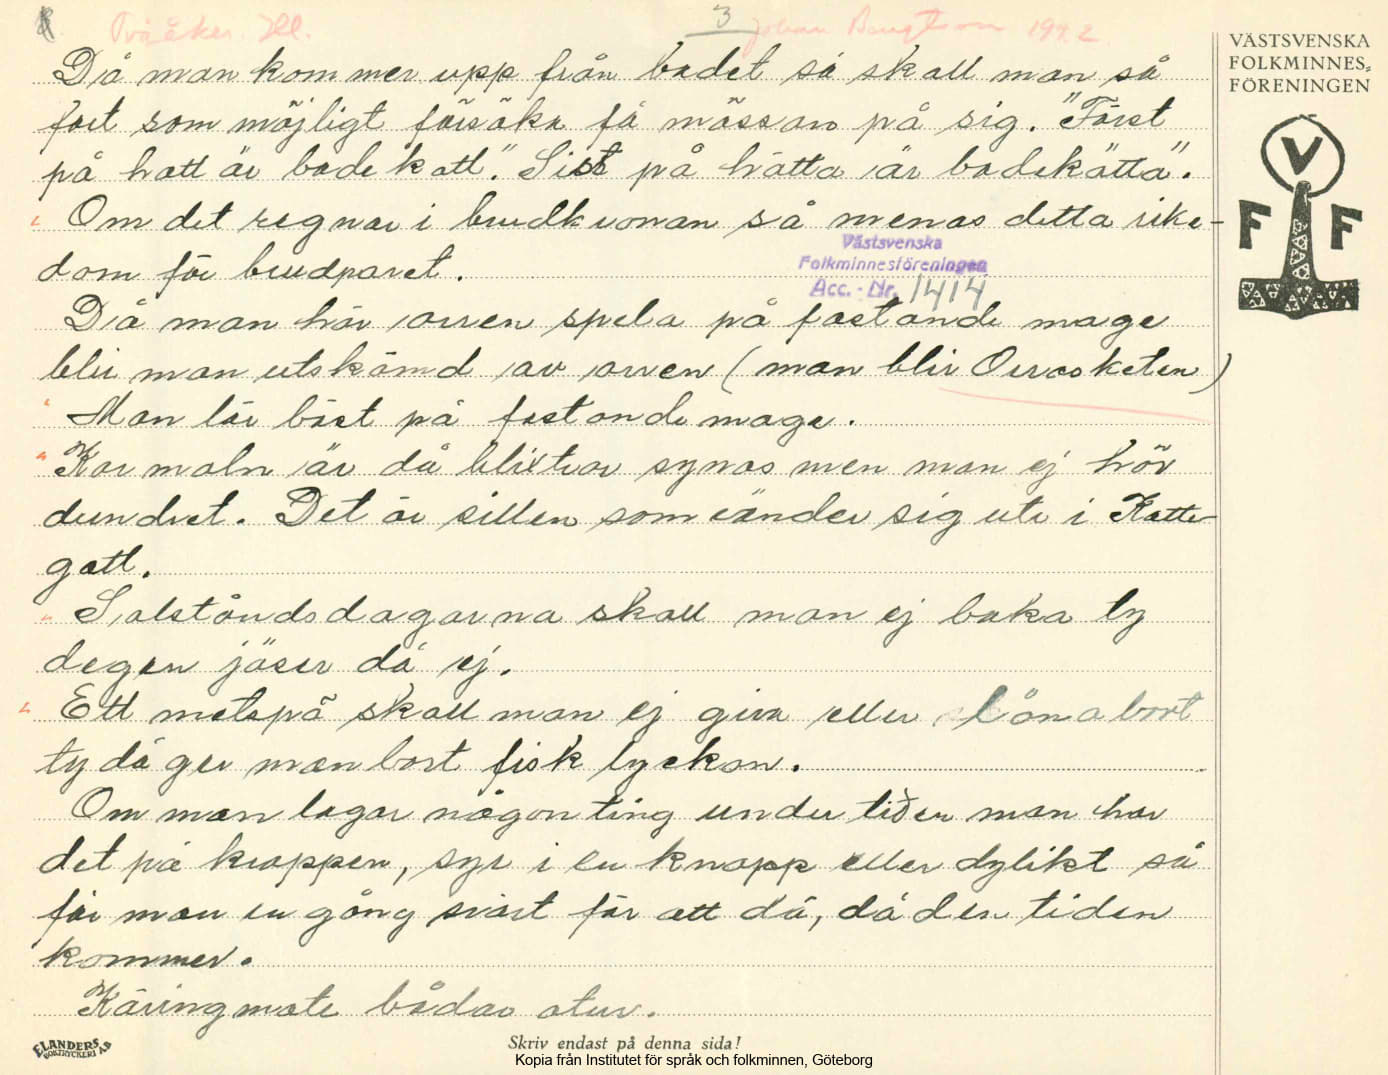 Tvååker. Hl.
3
Johan Bengtsson 1922
VÄSTSVENSKA
FOLKMINNES=
FÖRENINGEN
V
F F
Då man kommer upp från badet så skall man så
fort som möjligt försöka få mössan på sig. "Först
på hatt är badekatt." Sist på hätta är badekätta".
Om det regnar i brudkronan så menas detta rike-
dom för brudparet.
Västsvenska
Folkminnesföreningen
Acc. - Nr. 1414
Då man hör orren spela på fastande mage
blir man utskämd av orren (man blir Orrasketen)
Man lär bäst på fastande mage.
Kormoln är då blixtrar synas men man ej hör
dundret. Det är sillen som vänder sig ute i Katte-
gatt.
Salståndsdagarna skall man ej baka ty
degen jäser då ej.
Ett metspö skall man ej giva eller låna bort
ty då ger man bort fisklyckan.
Om man lagar någonting under tiden man har
det på kroppen, syr i en knapp eller dylikt så
får man en gång svårt för att dö, då den tiden
kommer.
Käringmöte bådar otur.
ELANDERS
BOKTRYCKERI AB
Skriv endast på denna sida!
Kopia från Institutet för språk och folkminnen, Göteborg